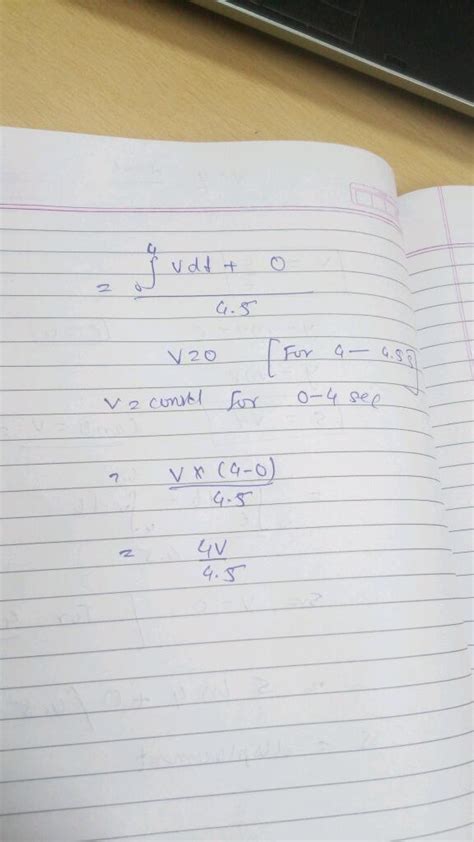 = ∫₀⁴ Vdt + 0 / 4.5
V=0 [For 4 — 4.5s]
V = const for 0-4 sec
= V × (4-0) / 4.5
= 4V / 4.5